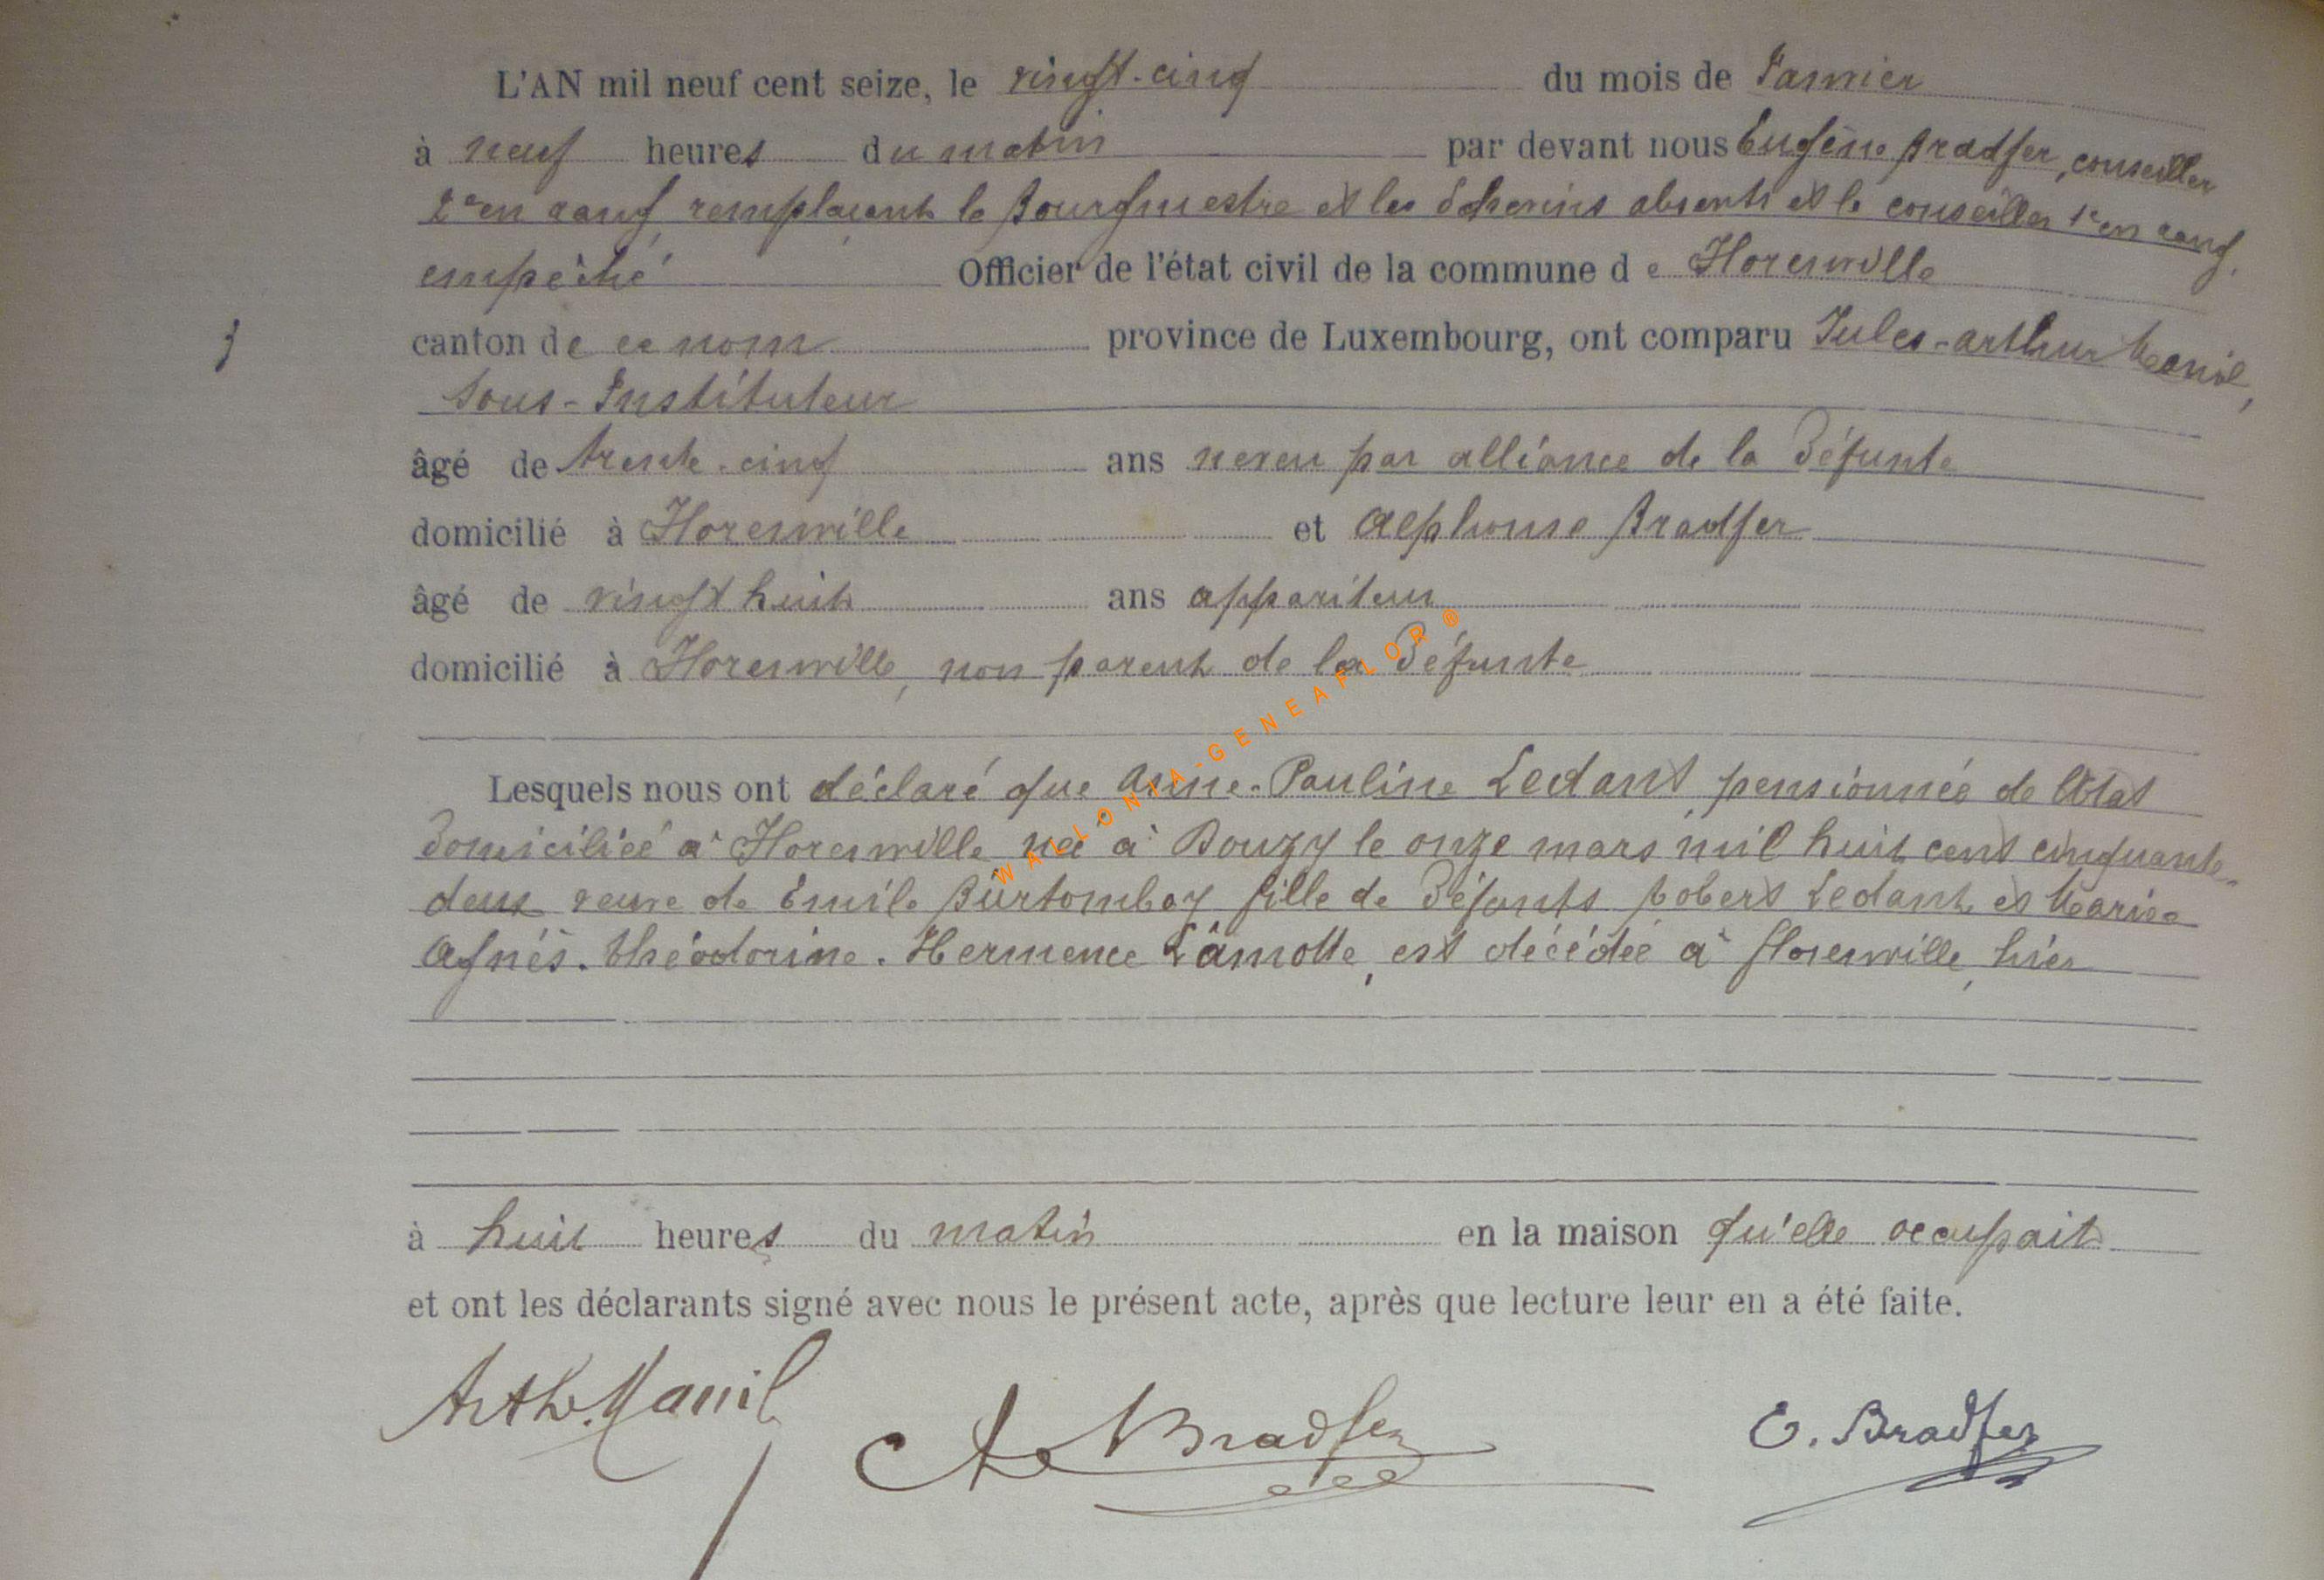 L'AN mil neuf cent seize, le vingt-cinq du mois de Janvier
à neuf heures du matin par devant nous Eugène Bradfer, conseiller
2e en rang, remplaçant le Bourgmestre et les Echevins absents et le conseiller 1e en rang,
empêché Officier de l'état civil de la commune de Florenville
canton de ce nom province de Luxembourg, ont comparu Jules-Arthur Manil,
3
Sous-Instituteur
âgé de trente-cinq ans neveu par alliance de la Défunte
domicilié à Florenville et Alphonse Bradfer
âgé de vingt huit ans appariteur
domicilié à Florenville, non parent de la Défunte
Lesquels nous ont déclaré que Anne-Pauline Ledant, pensionnée de l'Etat
Domiciliée à Florenville née à Bouzy le onze mars mil huit cent cinquante-
deux veuve de Emile Burtomboy, fille de Défunts Robert Ledant et Marie-
Agnés-Théodorine-Hermence Lamotte, est décédée à florenville, hier
à huit heures du matin en la maison qu'elle occupait
et ont les déclarants signé avec nous le présent acte, après que lecture leur en a été faite.
Arth. Manil A Bradfer E. Bradfer
WALLONIA-GENEAFLOR ®